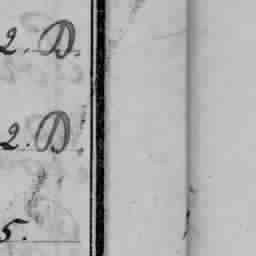 2. D.
2. D.
5.